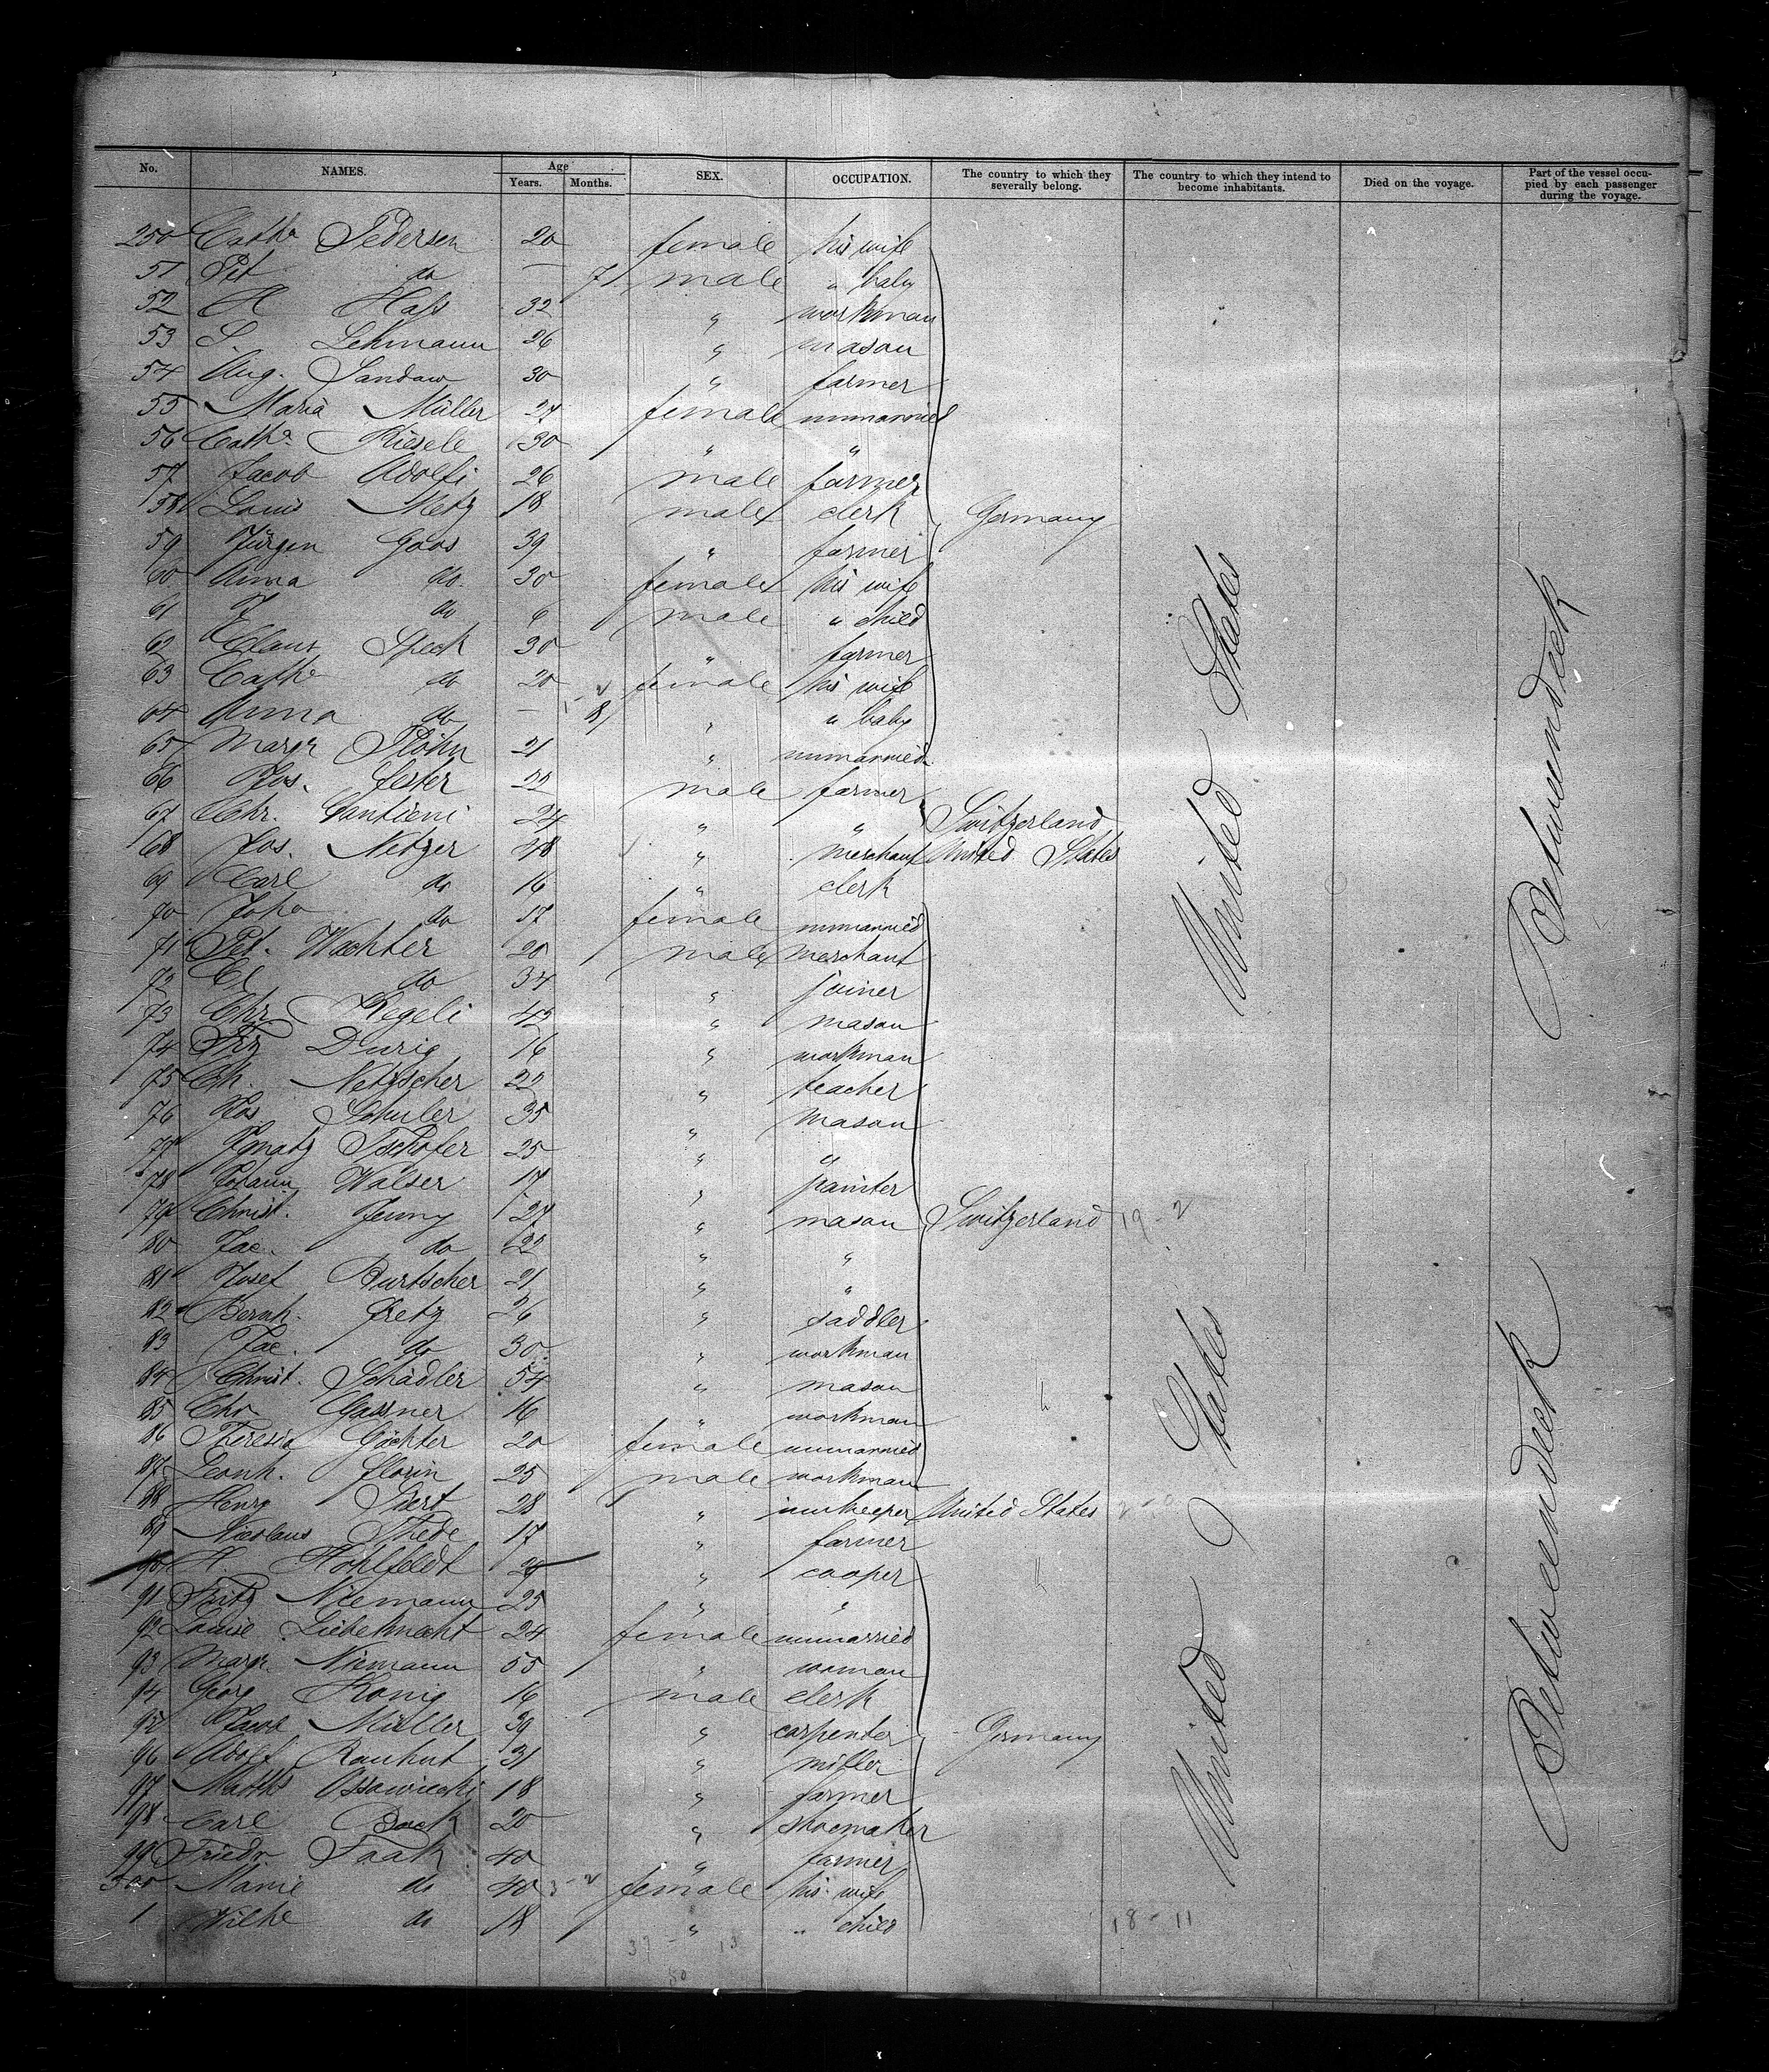 No. NAMES. Age Years. Months. SEX. OCCUPATION. The country to which they severally belong. The country to which they intend to become inhabitants. Died on the voyage. Part of the vessel occupied by each passenger during the voyage.
250 Cath^a Pedersen 20 female his wife
51 Pet do — 7/ male " baby
52 H Hass 32 " workman
53 S. Lehmann 26 " mason
54 Aug. Sandow 30 " farmer
55 Maria Müller 27 female unmarried
56 Cath^a Kiesele 30 " "
57 Jacob Adolfi 26 male farmer
58 Louis Metz 18 male clerk Germany
59 Jürgen Goos 39 " farmer
60 Anna do. 30 female his wife
61 J do 6 male " child
62 Claus Speck 30 " farmer
63 Cath^a do 20 female his wife
64 Anna do — 8/ " " baby
65 Margr Plöhn 21 " unmarried
66 Jos. 22 male farmer
67 Chr. Cantieni 24 " " Switzerland
68 Jos. Netzer 48 " merchant United States
69 Carl do 16 " clerk
70 Joha do 17 female unmarried
71 Pet. Wachter 20 male merchant
72 do 34 " joiner
73 Chr Kegeli 42 " mason
74 Frz Durig 16 " workman
75 Ch. Netzscher 22 " teacher
76 Jos Schuler 35 " mason
77 Ignatz Tschofer 25 " "
78 Johann Walser 17 " painter
79 Christ. Jenny 27 " mason Switzerland 19-2
80 Jac. do 22 " "
81 Josef Burtscher 21 " "
82 Bernh. Fretz 26 " saddler
83 Jac. do 30 " workman
84 Christ. Schädler 54 " mason
85 Chr Gassner 16 " workman
86 Theresia Gächter 20 female unmarried
87 Leonh. Florin 25 male workman
88 Henry 28 " innkeeper United States
89 Nicolaus Thede 17 " farmer
90 H. Hohlfeldt 29 " cooper
91 Fritz Niemann 25 " "
92 Louise Liebeknecht 24 female unmarried
93 Margr. Niemann 55 " woman
94 Georg König 16 male clerk
95 Jacob Müller 39 " carpenter Germany
96 Adolf Rauhut 31 " miller
97 Maths Ossowiecki 18 " farmer
98 Carl Bock 20 " shoemaker
99 Friedr. Taak 40 " farmer
300 Marie do 40 female his wife
1 Wilhe do 18 " " child 18-11
37 - 13
50
United States
United States
Betweendeck
Betweendeck